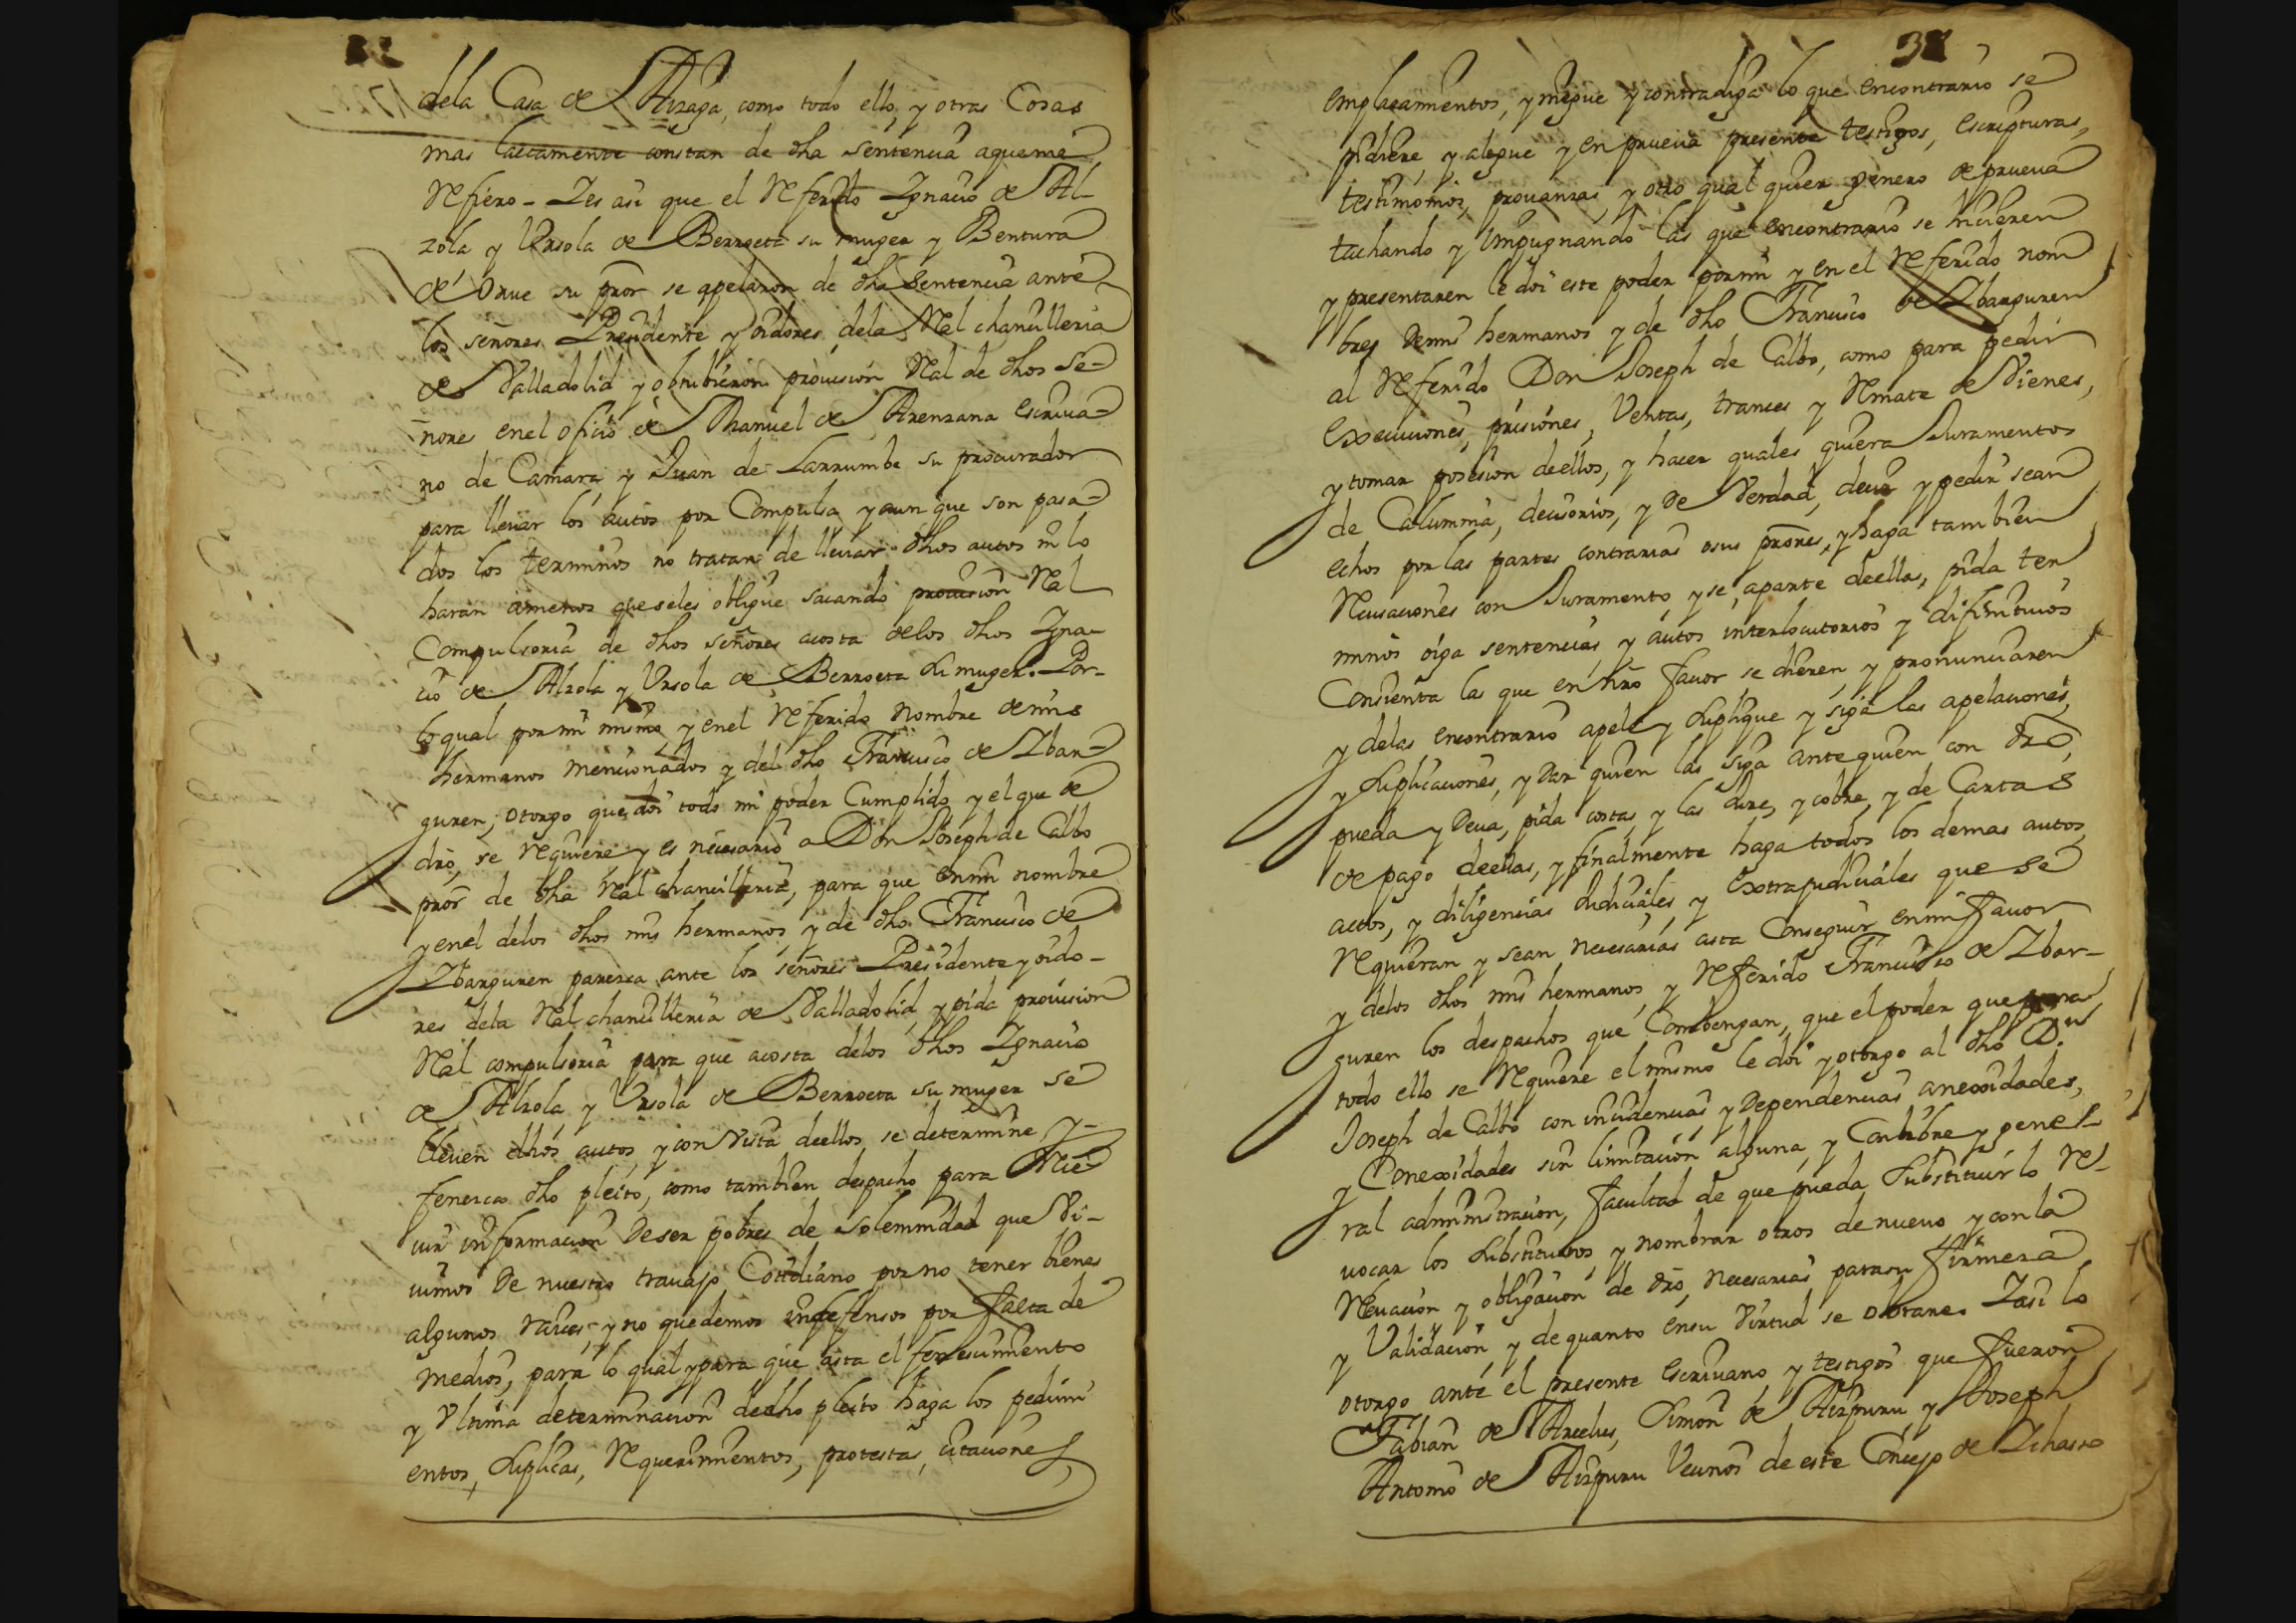 dela Casa de Arzaga, como todo ello, y otras Cosas
mas laetamente constan de dha sentencia aqueme
Refiero - Yes asi que el Referido Ygnacio de Al-
zola y Ursola de Berroeta su muger y Bentura
de Orue su pror se apelaron de dha Sentencia ante
los señores Presidente y oidores dela Real chancilleria
de Valladolid y obtubieron provision Real de dhos Se-
ñores enel oficio de Manuel de Arenzana escriua-
no de Camara y Juan de Larrumbe su procurador
para lleuar los autos por Compulsa y aun que son pasa-
dos los terminos no tratan de lleuar dhos autos ni lo
haran amenos queseles obligue sacando provision Real
Compulsoria de dhos señores acosta delos dhos Ygna-
cio de Alzola y Ursola de Berroeta su muger. Por-
lo qual por mi mismo y enel Referido Nombre demis
hermanos mencionados y del dho Francisco de Ybar-
guren; otorgo que doi todo mi poder Cumplido y el que de
dro, se Requiere y es necesario a Don Joseph de Calbo
pror de dha Real chancilleria, para que enmi nombre
y enel delos dhos mis hermanos y de dho Francisco de
Ybarguren parezca ante los señores Presidente y oido-
res dela Real chancilleria de Valladolid y pida provision
Real compulsoria para que acosta delos dhos Ygnacio
de Alzola y Ursola de Berroeta su muger se
lleuen dhos autos y con vista deellos se determine y-
fenezca dho pleito, como tambien despacho para Rec-
uir informacion Deser pobres de solemnidad que Vi-
uimos De nuestro trauajo Cotidiano por no tener bienes
algunos raices, y no quedemos indefensos por falta de
medios, para lo qual y para que asta el fenescimiento
y Vltima determinacion dedho pleito haga los pedim
entos, suplicas, Requerimientos, protestas, citaciones,
emplazamientos, y niegue y contradiga lo que encontrario se
pidiere, y alegue y en prueua presente testigos, escripturas,
testimonios, prouanzas, y otro qual quier genero de prueua
tachando y impugnando las que encontrario se hicieren
y presentaren le doi este poder por mi y en el Referido nom
bres demis hermanos y de dho Francisco de Ybarguren
al Referido Don Joseph de Calbo, como para pedir
Execuciones, prisiones, Ventas, trances y Remate de Vienes,
y tomar posesion deellos, y hacer quales quiera Juramentos
de Calumnia, decisorios, y de Verdad, decir y pedir sean
echos por las partes contrarias osus prores, y haga tambien
Recusaciones con Juramento, y se aparte deellas, pida ter
minos oiga sentencias y autos interlocutorios y difinitiuos
Consienta las que en nro fauor se dieren, y pronunciaren
y delas encontrario apele y suplique y siga las apelaciones,
y suplicaciones, y dar quien las siga antequien con dro,
pueda y Deua, pida costas y las Jure, y cobre, y de Cartas
de pago deellas, y finalmente haga todos los demas autos,
actos, y diligencias Judiciales y Extrajudiciales que se
Requieran y sean necesarias asta Conseguir en mi fauor
y delos dhos mis hermanos, y Referido Francisco de Ybar-
guren los despachos que Combengan, que el poder que para
todo ello se Requiere el mismo le doi y otorgo al dho Dn
Joseph de Calbo con incidencias y Dependencias anexidades,
y Conexidades sin limitacion alguna, y Con libre y gene-
ral administracion, facultad de que pueda Substituirlo Re-
uocar los substitutos, y nombrar otros de nueuo y con la
Releuacion y obligacion de dro, necesarias para su firmeza
y Validacion y de quanto ensu Virtud se obrare. Yasi lo
otorgo ante el presente escriuano, y testigos que fueron
Fabian de Arcelus, Simon de Aizpuru y Joseph
Antonio de Aizpuru Vecinos de este Concejo de Ychaso